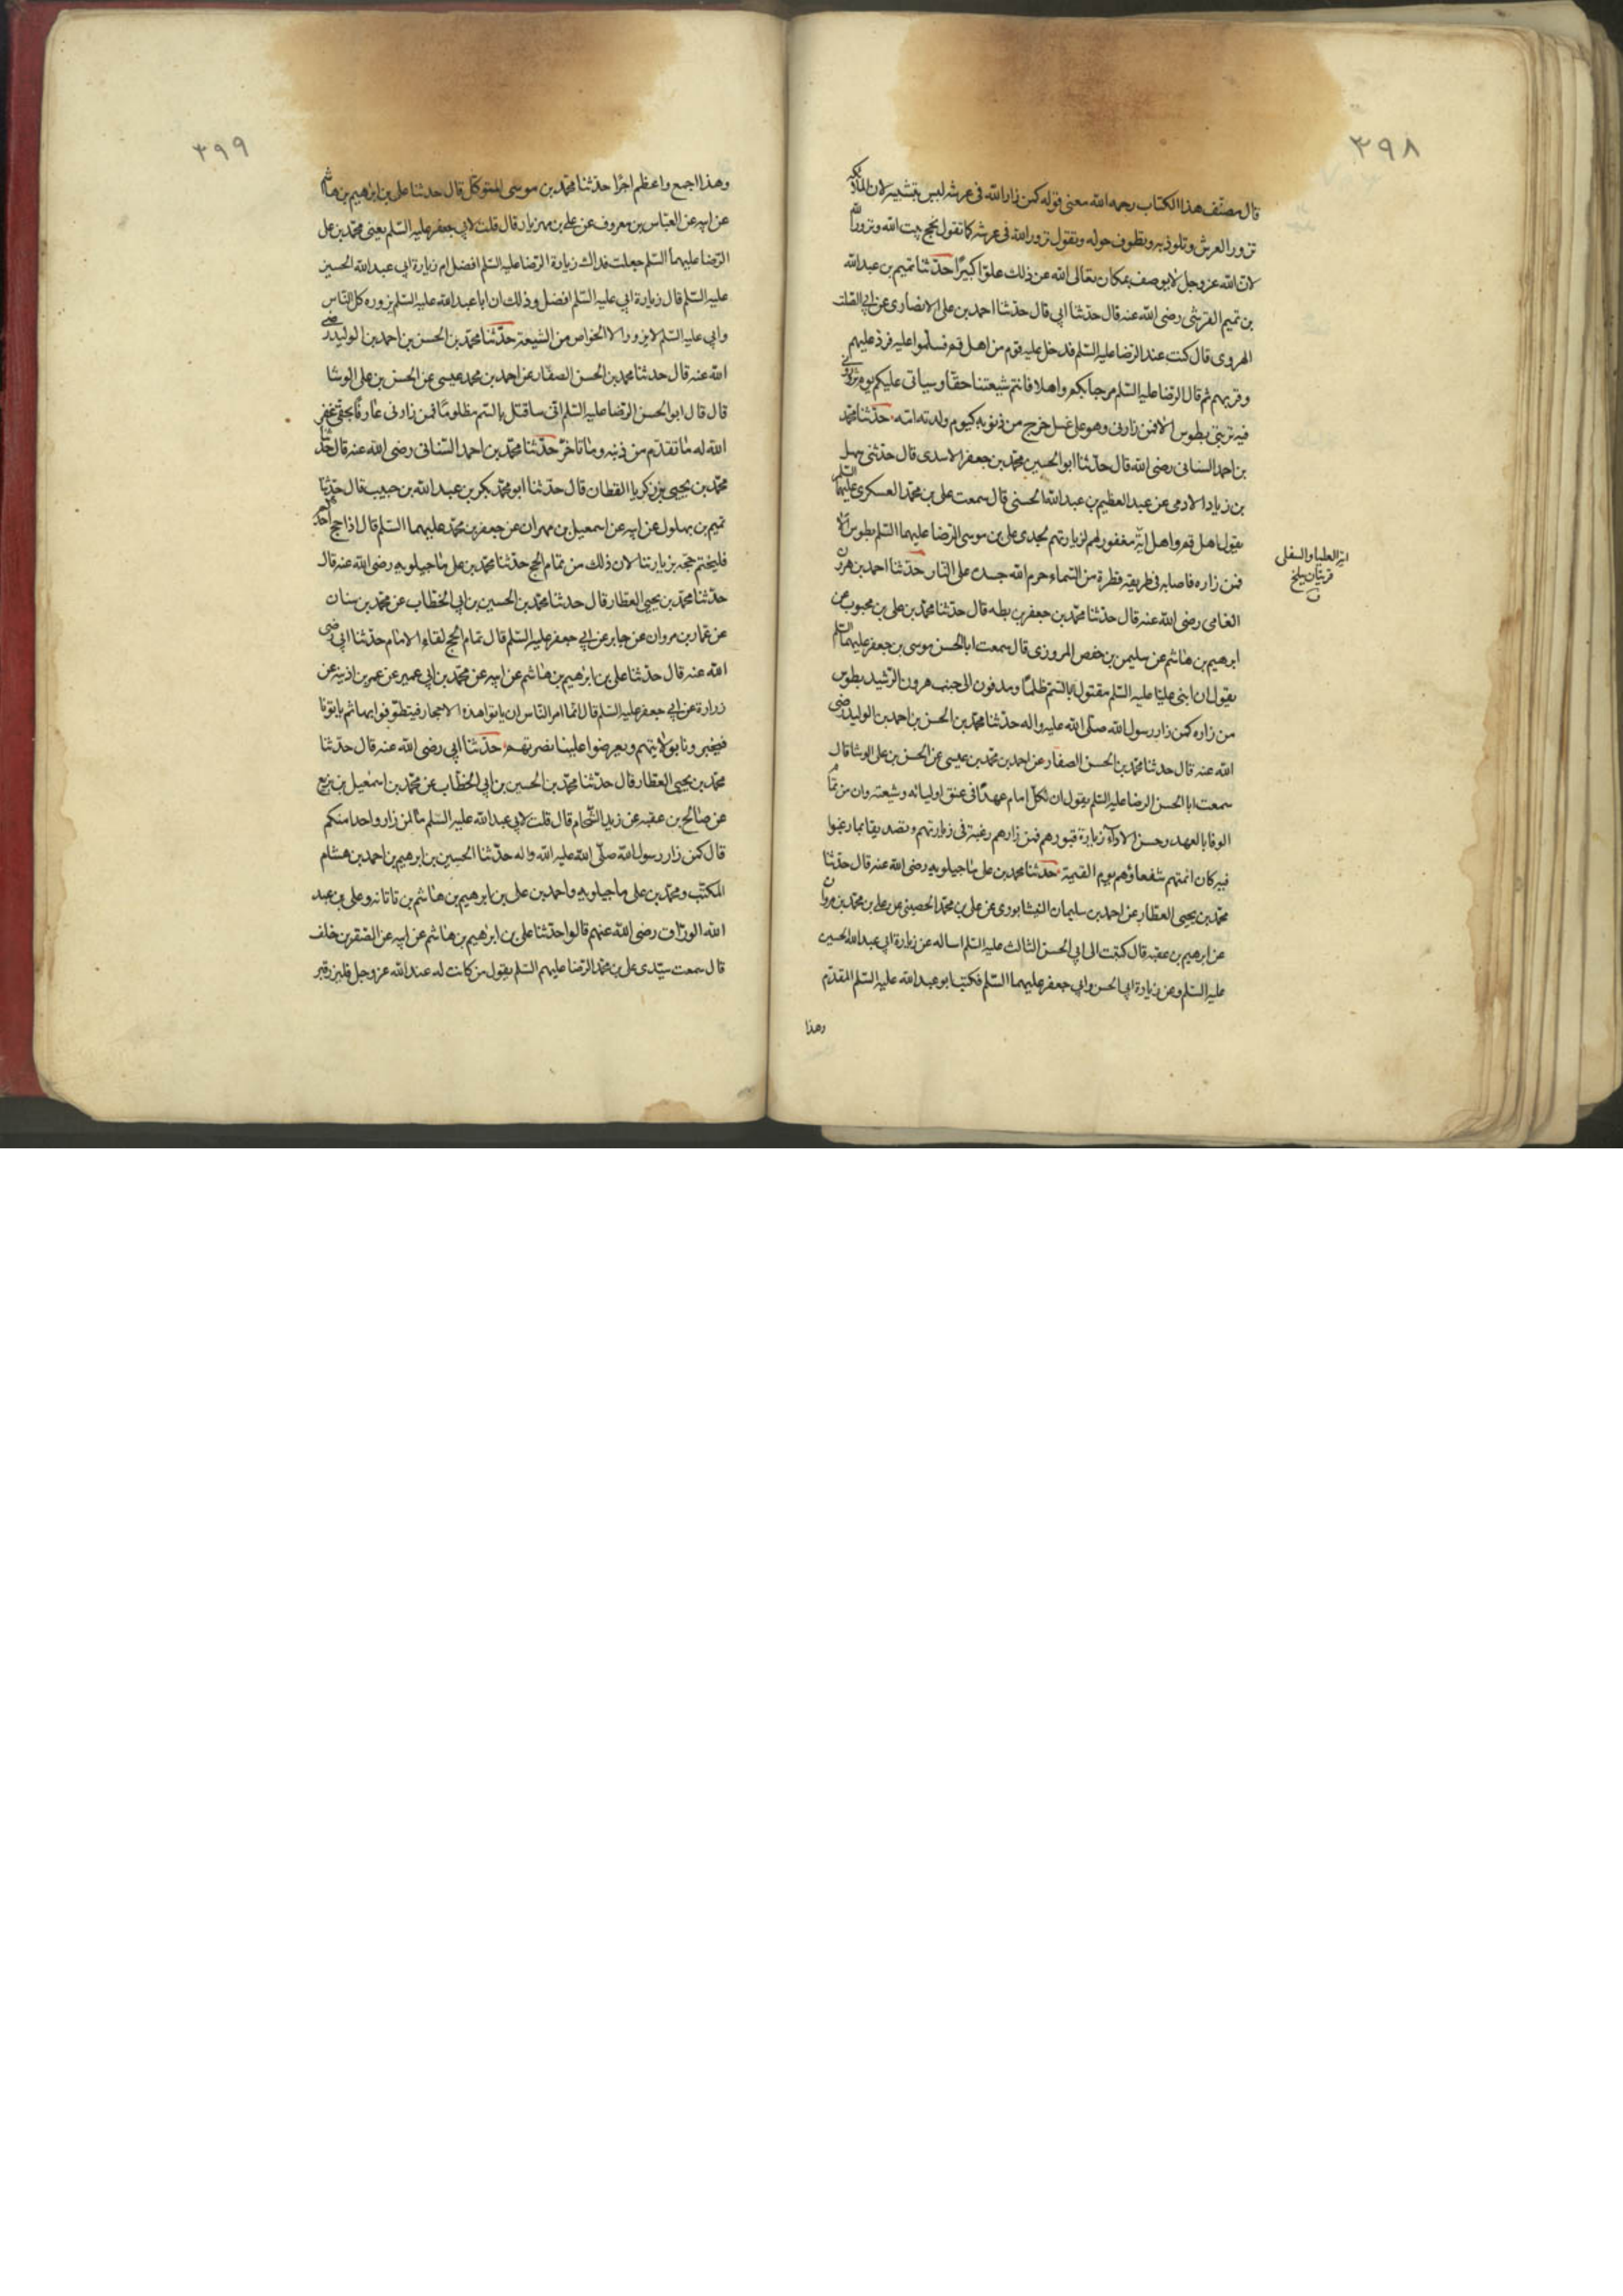 ٣٩٨
قال مصنف هذا الكتاب رحمه الله معنى قوله كمن زار الله فى عرشه ليس بتشبيه لان الملائكة
تزور العرش وتلوذ به وتطوف حوله وتقول تزور الله فى عرشه كما تقول نحج بيت الله ونزور الله
لان الله عز وجل لا يوصف بمكان تعالى الله عن ذلك علوّا كبيرًا حدّثنا تميم بن عبد الله
بن تميم القرشى رضى الله عنه قال حدّثنا ابى قال حدّثنا احمد بن على الانصارى عن ابى الصلت
الهروى قال كنت عند الرضا عليه السّلم فدخل عليه قوم من اهل قم فسلّموا عليه فردّ عليهم
وقربهم ثم قال الرضا عليه السّلم مرحبا بكم واهلا فانتم شيعتنا حقّا وسياتى عليكم يوم تزورونى
فيه تربتى بطوس الا فمن زارنى وهو على غسل خرج من ذنوبه كيوم ولدته امّه حدّثنا محمّد
بن احمد السنانى رضى الله قال حدّثنا ابو الحسين محمّد بن جعفر الاسدى قال حدّثنى سهل
بن زياد الادمى عن عبد العظيم بن عبد الله الحسنى قال سمعت على بن محمّد العسكرى عليهما السّلم
يقول اهل قم واهل ابّة مغفور لهم لزيارتهم لجدى على بن موسى الرّضا عليهما السّلم بطوس الا
فمن زاره فاصابه فى طريقه قطرة من السّماء حرم الله جسده على النار حدّثنا احمد بن هرون
ابّة العليا والسفلى
قريتان ببلخ
ن
الفامى رضى الله عنه قال حدّثنا محمّد بن جعفر بن بطه قال حدّثنا محمّد بن على بن محبوب عن
ابرهيم بن هاشم عن سليمن بن حفص المروزى قال سمعت ابا الحسن موسى بن جعفر عليهما السّلم
يقول ان ابنى عليّا عليه السّلم مقتول بالسّمّ ظلمًا ومدفون الى جنب هرون الرّشيد بطوس
من زاره كمن زار رسول الله صلّى الله عليه واله حدّثنا محمّد بن الحسن بن احمد بن الوليد رضى
الله عنه قال حدّثنا محمّد بن الحسن الصفار عن احمد بن محمّد بن عيسى عن الحسن بن على الوشا قال
سمعت ابا الحسن الرضا عليه السّلم يقول ان لكلّ امام عهدًا فى عنق اوليائه وشيعته وان من تمام
الوفا بالعهد وحسن الاداء زيارة قبورهم فمن زارهم رغبة فى زيارتهم وتصديقا بما رغبوا
فيه كان ائمتهم شفعاؤهم يوم القيمة حدّثنا محمد بن على ماجيلويه رضى الله عنه قال حدّثنا
محمّد بن يحيى العطار عن احمد بن سليمان النيشابورى عن على بن محمّد الحصينى عن على بن محمّد بن مروان
عن ابرهيم بن عقبه قال كتبت الى ابى الحسن الثالث عليه السّلم اساله عن زيارة ابى عبد الله الحسين
عليه السّلم وعن زيارة ابى الحسن وابى جعفر عليهما السّلم فكتب ابو عبد الله عليه السّلم المقدّم
وهذا
٣٩٩
وهذا اجمع واعظم اجرًا حدّثنا محمّد بن موسى المتوكّل قال حدثنا على بن ابرهيم بن هاشم
عن ابيه عن العبّاس بن معروف عن على بن مهزيار قال قلت لابى جعفر عليه السّلم يعنى محمّد بن على
الرّضا عليهما السّلم جعلت فداك زيارة الرّضا عليه السّلم افضل ام زيارة ابى عبد الله الحسين
عليه السّلم قال زيارة ابى عليه السّلم افضل وذلك ان ابا عبد الله عليه السّلم يزوره كلّ النّاس
وابى عليه السّلم لا يزوره الا الخواص من الشيعة حدّثنا محمّد بن الحسن بن احمد بن الوليد رضى
الله عنه قال حدثنا محمد بن الحسن الصفّار عن احمد بن محمد عيسى عن الحسن بن على الوشا
قال قال ابو الحسن الرّضا عليه السّلم انّى ساقتل بالسّم مظلومًا فمن زارنى عارفًا بحقّى غفر
الله له ما تقدّم من ذنبه وما تاخّر حدّثنا محمّد بن احمد السّنانى رضى الله عنه قال حدّثنا
محمّد بن يحيى بن زكريا القطان قال حدّثنا ابو محمّد بكر بن عبد الله بن حبيب قال حدّثنا
تميم بن بهلول عن ابيه عن اسمعيل بن مهران عن جعفر بن محمّد عليهما السّلم قال اذا حج احدكم
فليختم حجّه بزيارتنا لان ذلك من تمام الحج حدّثنا محمّد بن على ماجيلويه رضى الله عنه قال
حدّثنا محمّد بن يحيى العطار قال حدثنا محمّد بن الحسين بن ابى الخطاب عن محمّد بن سنان
عن عمّار بن مروان عن جابر عن ابى جعفر عليه السّلم قال تمام الحج لقاء الامام حدّثنا ابى رضى
الله عنه قال حدّثنا على بن ابرهيم بن هاشم عن ابيه عن محمّد بن ابى عمير عن عمر بن اذينه عن
زرارة عن ابى جعفر عليه السّلم قال انّما امر النّاس ان ياتوا هذه الاحجار فيتطوّفوا بها ثم ياتونا
فيخبرونا بولايتهم ويعرضوا علينا نصرتهم حدّثنا ابى رضى الله عنه قال حدّثنا
محمّد بن يحيى العطار قال حدّثنا محمّد بن الحسين بن ابى الخطّاب عن محمّد بن اسمعيل بن بزيع
عن صالح بن عقبه عن زيد الشّحام قال قلت لابى عبد الله عليه السّلم ما لمن زار واحدا منكم
قال كمن زار رسول الله صلّى الله عليه واله حدّثنا الحسين بن ابرهيم بن احمد بن هشام
المكتّب ومحمّد بن على ماجيلويه واحمد بن على بن ابرهيم بن هاشم بن تاتانه وعلى بن عبد
الله الورّاق رضى الله عنهم قالوا حدّثنا على بن ابرهيم بن هاشم عن ابيه عن الصّقر بن خلف
قال سمعت سيّدى على بن محمّد الرّضا عليهم السّلم يقول من كانت له عند الله عز وجل فليزر قبر